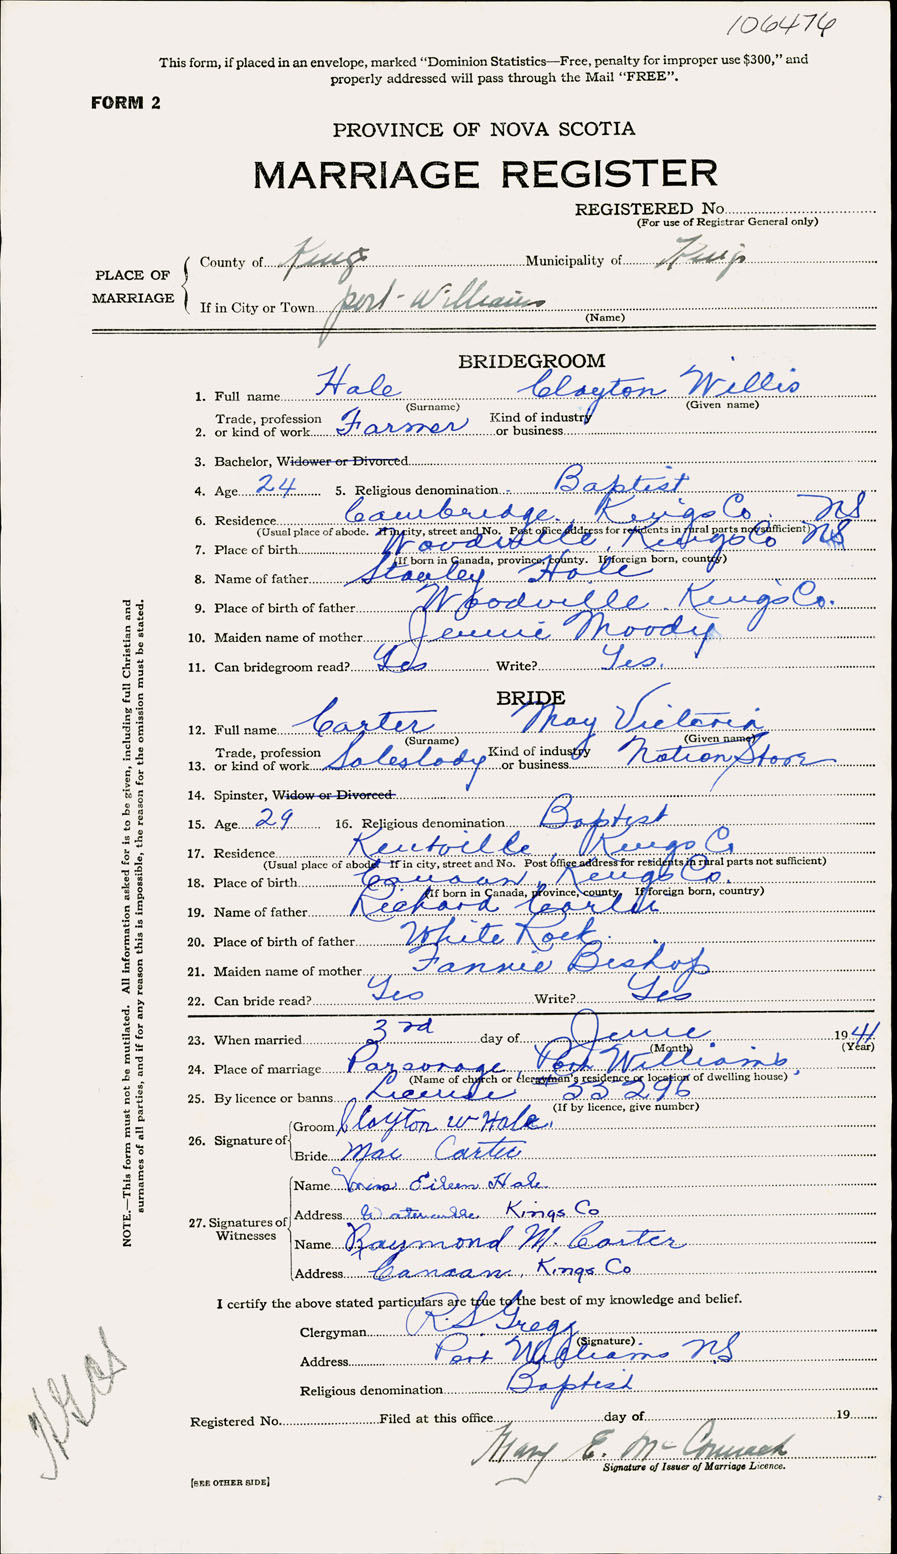 106476
This form, if placed in an envelope, marked "Dominion Statistics—Free, penalty for improper use $300," and
properly addressed will pass through the Mail "FREE".
FORM 2
PROVINCE OF NOVA SCOTIA
MARRIAGE REGISTER
REGISTERED No.
(For use of Registrar General only)
PLACE OF MARRIAGE
County of Kings Municipality of Kings
If in City or Town Port-Williams
(Name)
BRIDEGROOM
1. Full name Hale Clayton Willis
(Surname) (Given name)
Trade, profession Kind of industry
2. or kind of work Farmer or business
3. Bachelor, Widower or Divorced
4. Age 24 5. Religious denomination Baptist
6. Residence Cambridge, Kings Co. NS
(Usual place of abode. If in city, street and No. Post office address for residents in rural parts not sufficient)
7. Place of birth Woodville, Kings Co NS
(If born in Canada, province, county. If foreign born, country)
8. Name of father Stanley Hale
9. Place of birth of father Woodville Kings Co.
10. Maiden name of mother Jennie Moody
11. Can bridegroom read? Yes Write? Yes.
BRIDE
12. Full name Carter May Victoria
(Surname) (Given name)
Trade, profession Kind of industry
13. or kind of work Saleslady or business Notion Store
14. Spinster, Widow or Divorced
15. Age 29 16. Religious denomination Baptist
17. Residence Kentville, Kings Co
(Usual place of abode. If in city, street and No. Post office address for residents in rural parts not sufficient)
18. Place of birth Canaan, Kings Co.
(If born in Canada, province, county. If foreign born, country)
19. Name of father Richard Carter
20. Place of birth of father White Rock
21. Maiden name of mother Fannie Bishop
22. Can bride read? Yes Write? Yes
23. When married 3rd day of June 1941
(Month) (Year)
24. Place of marriage Parsonage, Port Williams,
(Name of church or clergyman's residence or location of dwelling house)
25. By licence or banns License 33296
(If by licence, give number)
26. Signature of
Groom Clayton W Hale.
Bride Mae Carter
27. Signatures of Witnesses
Name Miss Eileen Hale
Address Waterville Kings Co
Name Raymond M. Carter
Address Canaan, Kings Co
I certify the above stated particulars are true to the best of my knowledge and belief.
Clergyman R.S. Gregg
(Signature)
Address Port Williams NS
Religious denomination Baptist
Registered No. Filed at this office day of 19
Mary E. McCormack
Signature of Issuer of Marriage Licence.
[SEE OTHER SIDE]
NOTE.—This form must not be mutilated. All information asked for is to be given, including full Christian and
surnames of all parties, and if for any reason this is impossible, the reason for the omission must be stated.